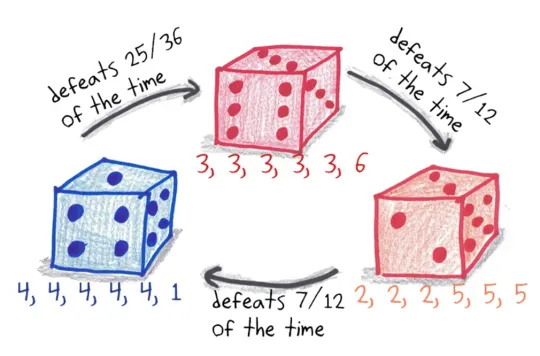 defeats 25/36
of the time
defeats 7/12
of the time
3, 3, 3, 3, 3, 6
4, 4, 4, 4, 4, 1
defeats 7/12
of the time
2, 2, 2, 5, 5, 5